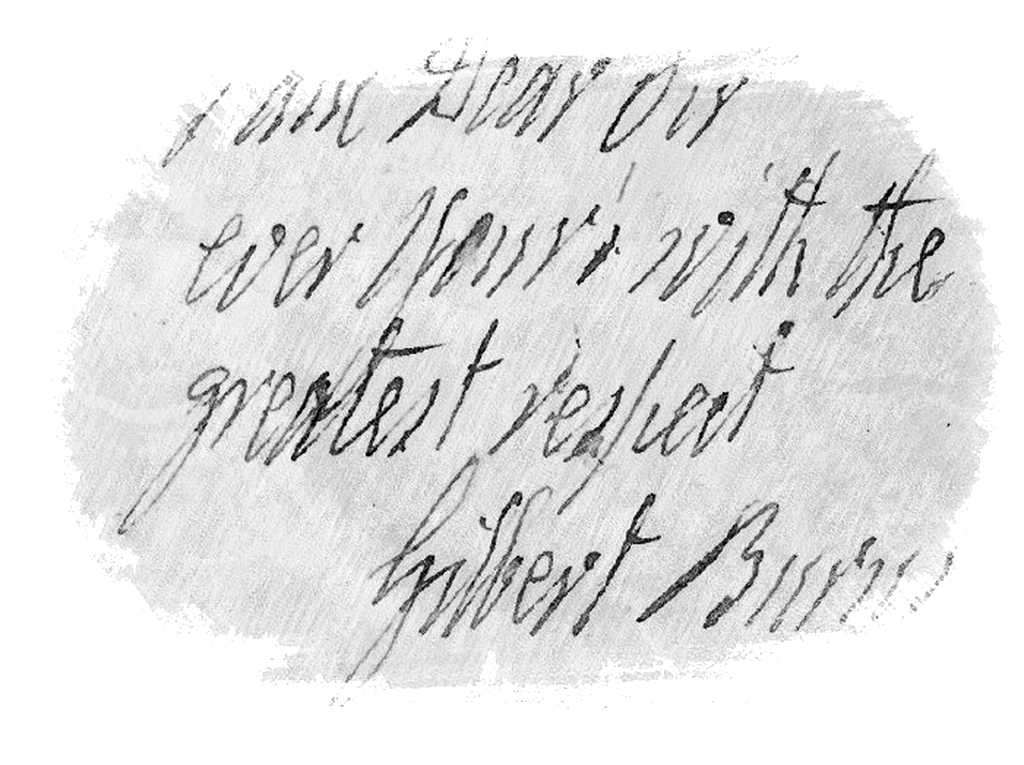 I am Dear Sir
ever Yours with the
greatest respect
Gilbert Burns